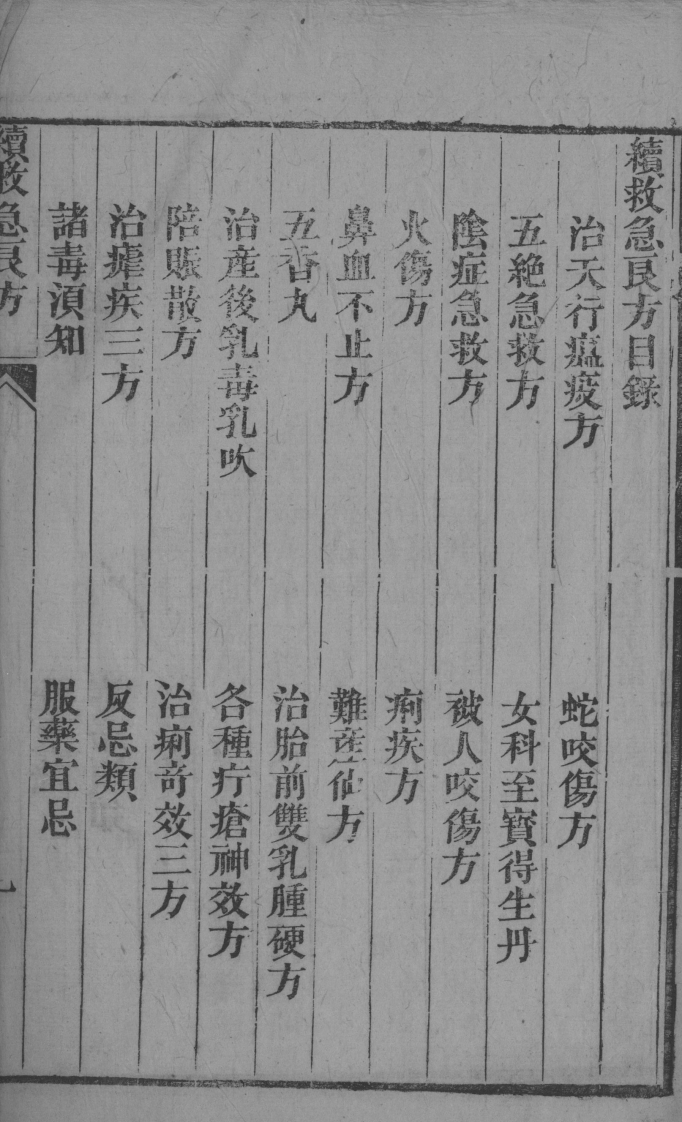 續救急良方目錄
治天行瘟疫方　蛇咬傷方
五絶急救方　女科至寳得生丹
陰症急救方　被人咬傷方
火傷方　痢疾方
鼻血不止方　難産仙方
五香丸　治胎前雙乳腫硬方
治産後乳毒乳吹　各種疔瘡神效方
陪賬散方　治痢奇效三方
治瘧疾三方　反忌類
諸毒湏知　服藥宜忌
續救急良方